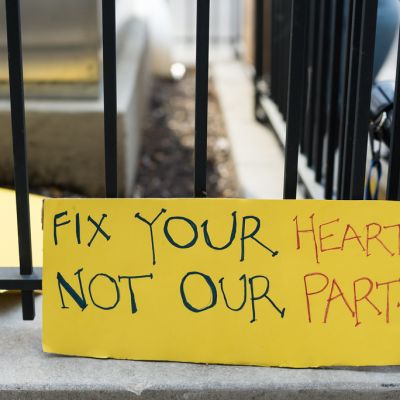 FIX YOUR HEART
NOT OUR PART